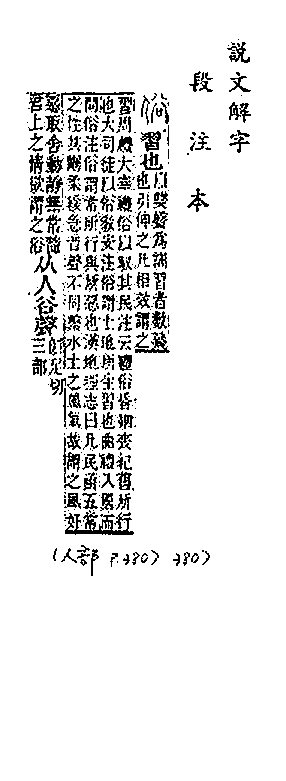 說文解字
段注本
俗 習也 以雙聲爲訓習者數飛
也引伸之凡相效謂之
習周禮大宰禮俗以馭其民注云禮俗昏姻喪紀舊所行
也大司徒以俗敎安注俗謂土地所生習也曲禮入國而
問俗注俗謂常所行與所惡也漢地理志曰凡民函五常
之性其剛柔緩急音聲不同繫水土之風氣故謂之風好
惡取舍動靜無常隨
君上之情欲謂之俗
从人谷聲 似足切
三部
(人部 P.380) 380)